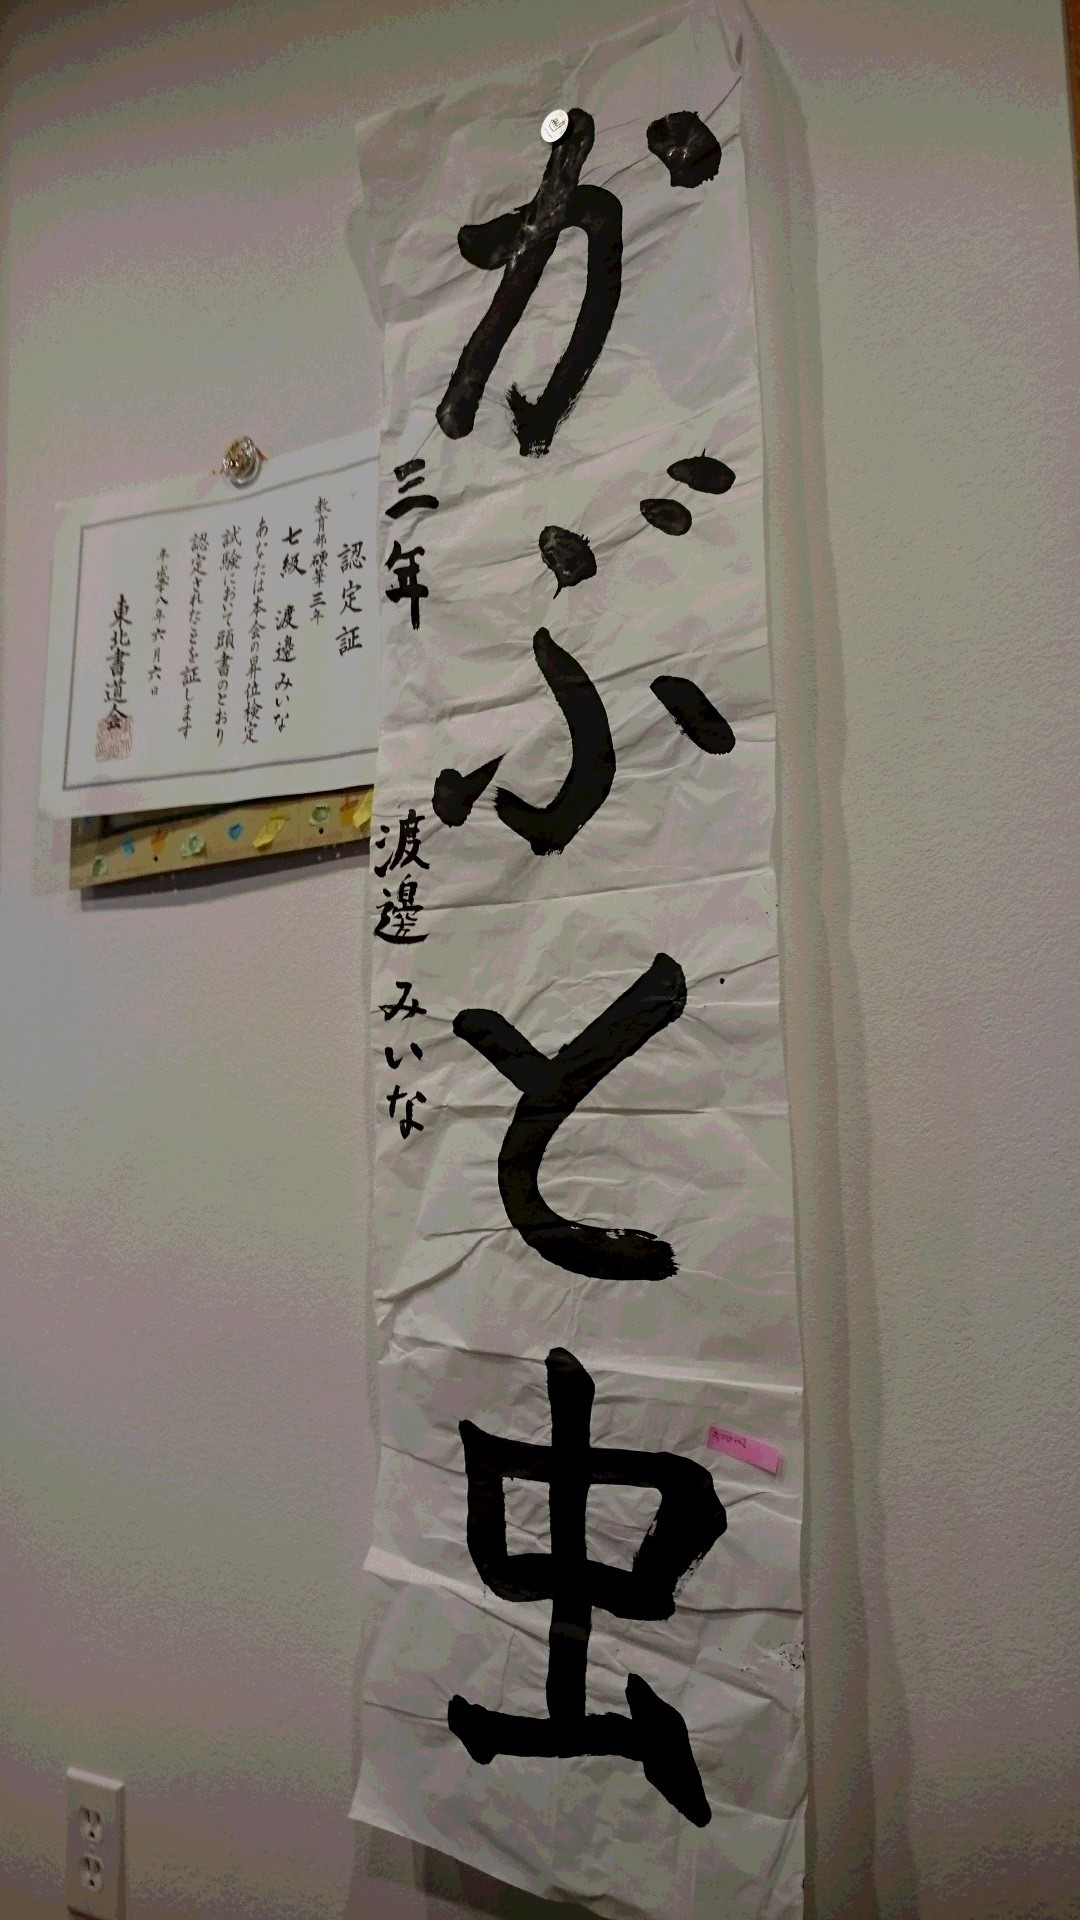 かぶと虫
三年 渡邊 みいな
認定証
教育部硬筆三年
七級 渡邊 みいな
あなたは本会の昇位検定
試験において頭書のとおり
認定されたことを証します
平成十八年六月六日
東北書道会